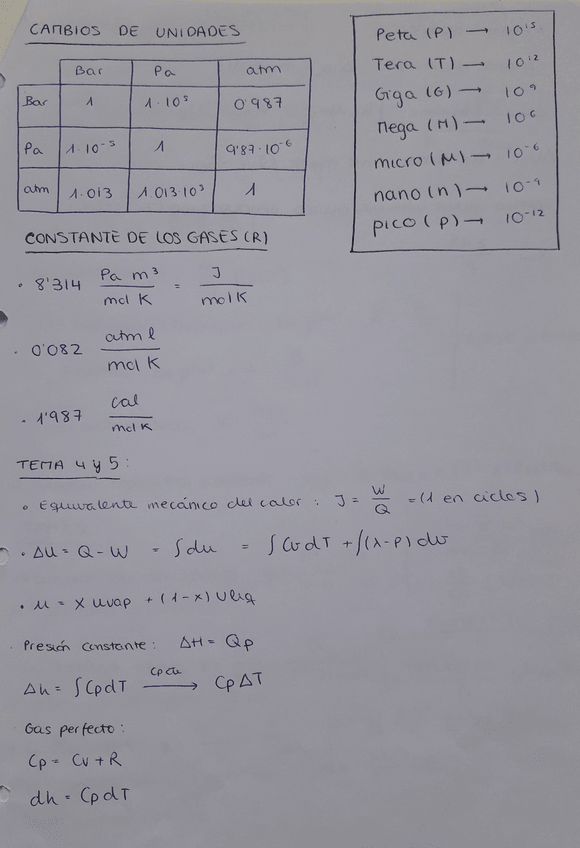 CAMBIOS DE UNIDADES
Bar Pa atm
Bar 1 1·10⁵ 0'987
Pa 1·10⁻⁵ 1 9'87·10⁻⁶
atm 1.013 1.013·10⁵ 1
Peta (P) → 10¹⁵
Tera (T) → 10¹²
Giga (G) → 10⁹
Mega (M) → 10⁶
micro (μ) → 10⁻⁶
nano (n) → 10⁻⁹
pico (p) → 10⁻¹²
CONSTANTE DE LOS GASES (R)
· 8'314 Pa m³ / mol K = J / mol K
· 0'082 atm l / mol K
· 1'987 cal / mol K
TEMA 4 y 5:
· Equivalente mecánico del calor : J = W/Q = (1 en ciclos)
· ΔU = Q - W = ∫du = ∫CvdT + ∫(λ-P)dv
· u = x uvap + (1-x) uliq
Presión constante: ΔH = Qp
Δh = ∫CpdT → Cp cte CpΔT
Gas perfecto:
Cp = Cv + R
dh = CpdT